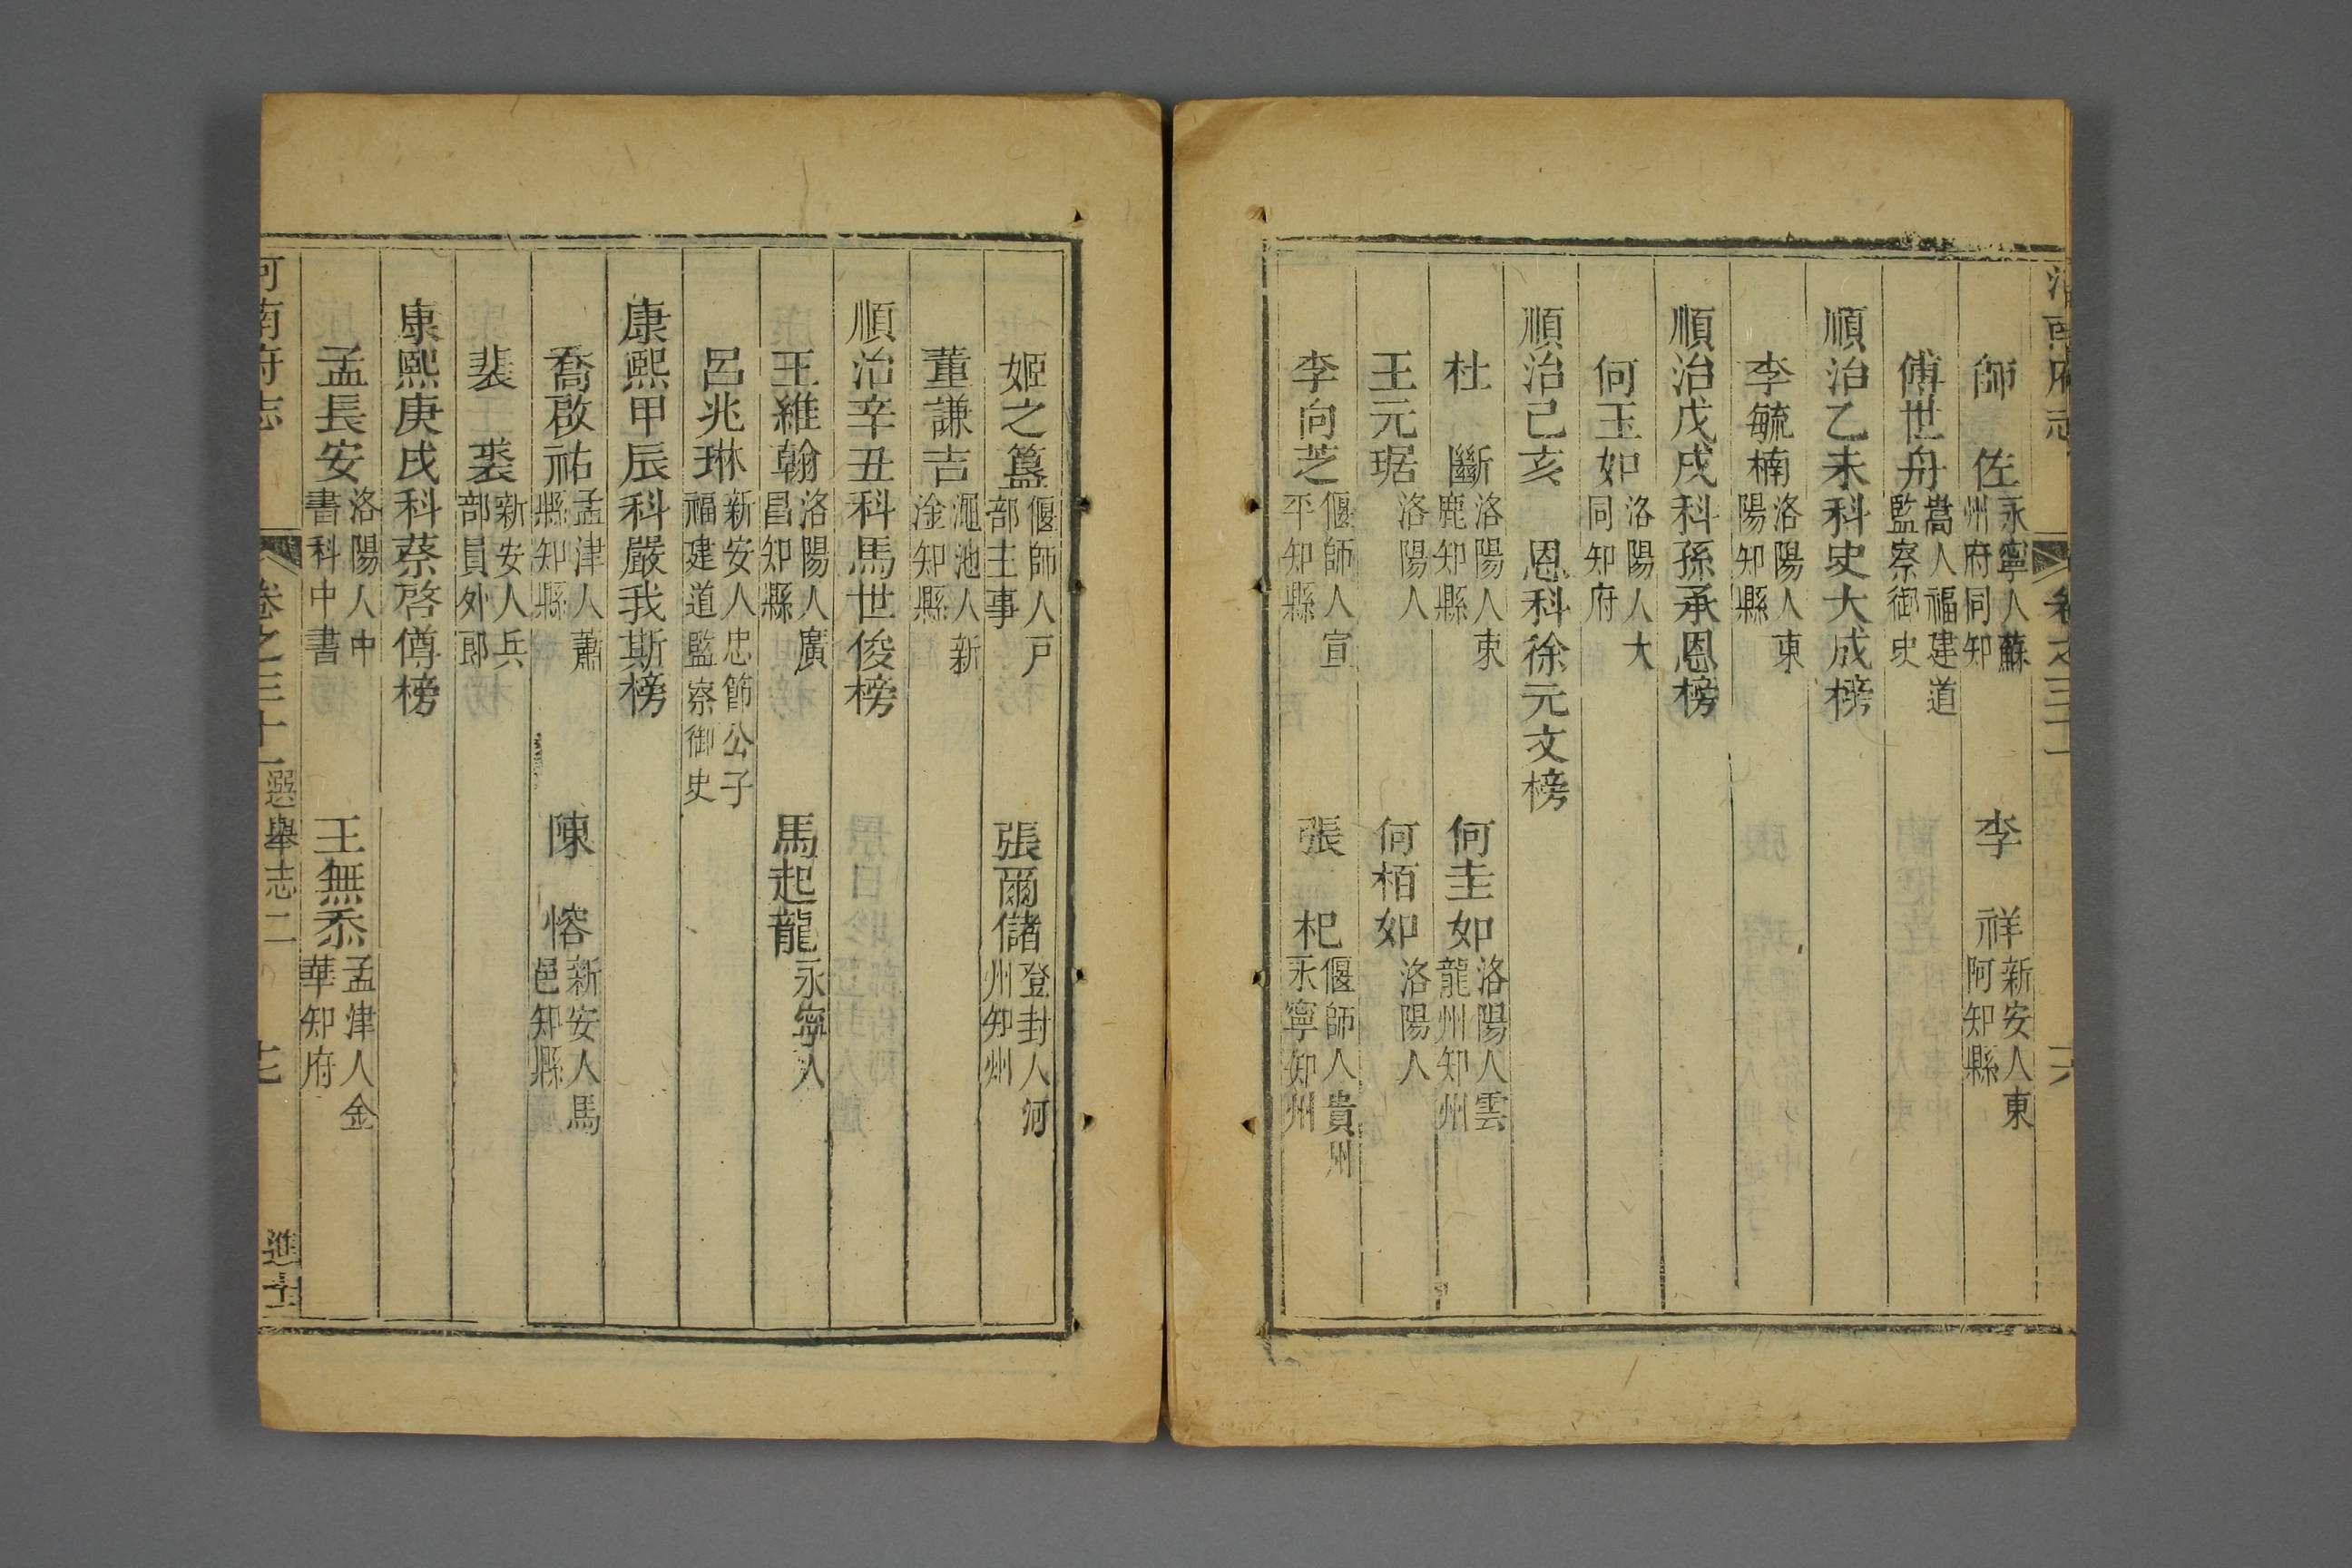 師佐永寧人蘇州府同知　李祥新安人東阿知縣
傅世舟嵩人福建道監察御史
順治乙未科史大成榜
李毓楠洛陽人東陽知縣
順治戊戌科孫承恩榜
何玉如洛陽人大同知府
順治己亥　恩科徐元文榜
杜斷洛陽人束鹿知縣　何圭如洛陽人雲龍州知州
王元琚洛陽人　何栢如洛陽人
李向芝偃師人宣平知縣　張杞偃師人貴州永寧知州
姬之簋偃師人戸部主事　張爾儲登封人河州知州
董謙吉澠池人新淦知縣
順治辛丑科馬世俊榜
王維翰洛陽人廣昌知縣　馬起龍永寧人
呂兆琳新安人忠節公子福建道監察御史
康熙甲辰科嚴我斯榜
喬啟祐孟津人蕭縣知縣　陳愹新安人馬邑知縣
裴裘新安人兵部員外郎
康熙庚戌科蔡啓僔榜
孟長安洛陽人中書科中書　王無忝孟津人金華知府
河南府志　卷之三十一　選舉志二　進士